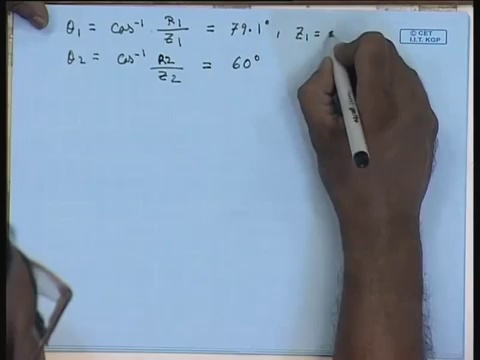 θ1 = cos⁻¹ R1/Z1 = 79.1°, Z1 =
θ2 = cos⁻¹ R2/Z2 = 60°
© CET
I.I.T. KGP